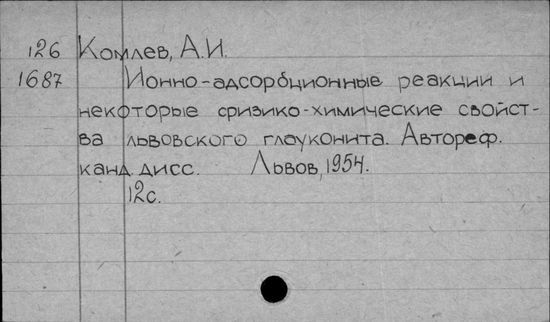 126 Комлев, А.И.
1687 Ионно-адсорбционные реакции и
некоторые физико-химические свойст-
ва львовского глауконита. Автореф.
канд. дисс. Львов, 1954.
12с.